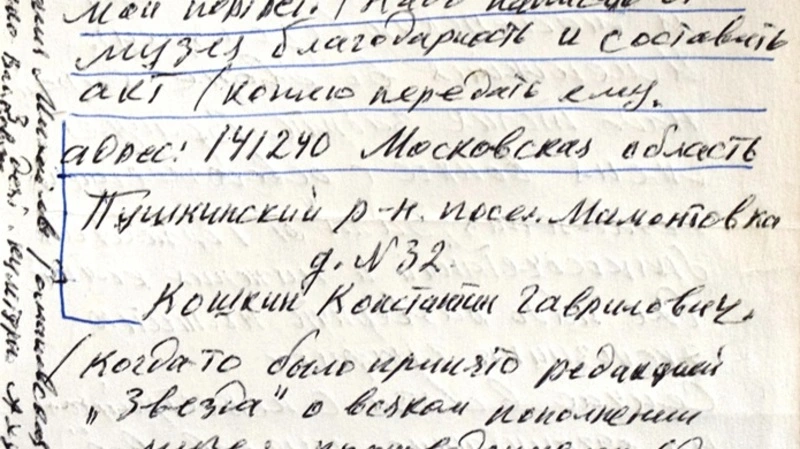 музея благодарность и составить
акт /копию передать ему.
адрес: 141240 Московская область
Пушкинский р-н. посел. Мамонтовка
д. N 32
Кошкин Константин Гаврилович.
/когда-то было принято редакцией
"Звезда" о всяком пополнении